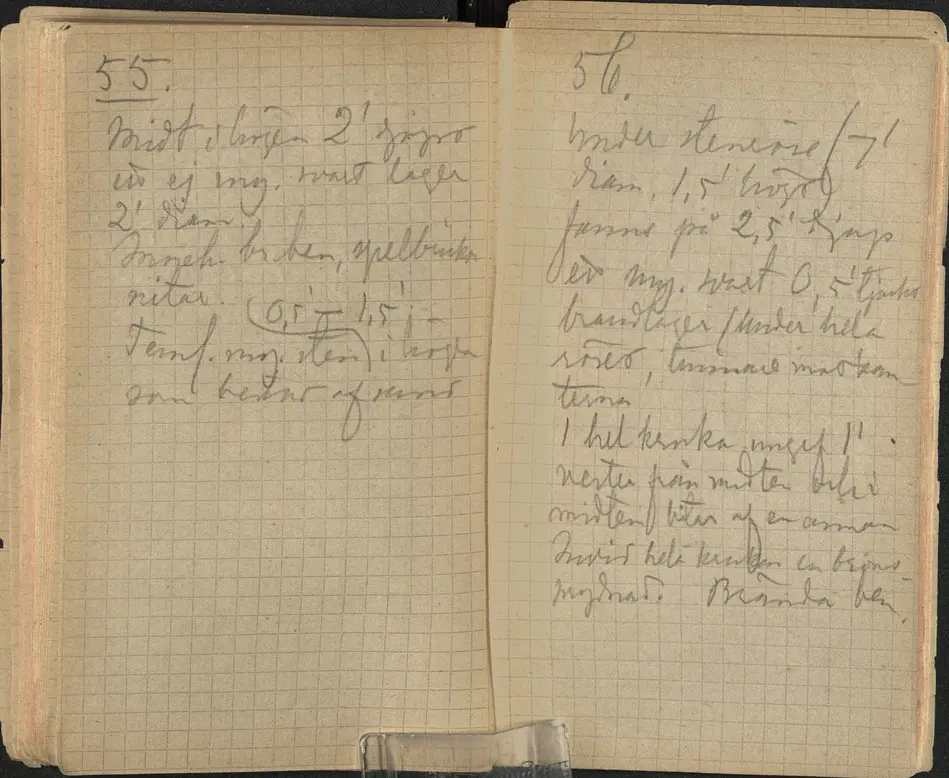 55.
Midt i högen 2' djupt
ett ej mg. svart lager
2' diam.
Inneh. br. ben, spelbrickor
nitar.
(0,5' – 1,5') –
Teml. mg. sten i högen
som bestod af sand
56.
Under stenröse (7'
diam, 1,5' högt)
fanns på 2,5' djup
ett mg. svart 0,5' tjockt
brandlager (under hela
röset, tunnare mot kan
terna
1 hel kruka ungef 1'
vester från midten och i
midten bitar af en annan
Invid hela krukan en brons
Brända ben.